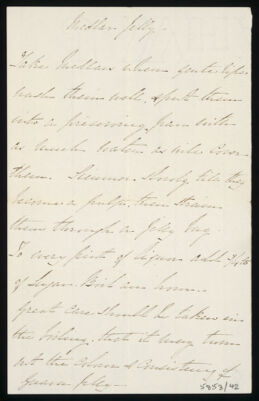 Medlar Jelly.
Take Medlars when quite ripe
wash them well, & put them
into a preserving pan with
as much water as will cover
them. Simmer slowly till they
become a pulp, then strain
them through a Jelly bag.
To every pint of liquor add 3/4 lb
of Sugar. Boil an hour.
Great care should be taken in
the boiling, that it may turn
out the colour & consistency of
Guava Jelly—
5853/42